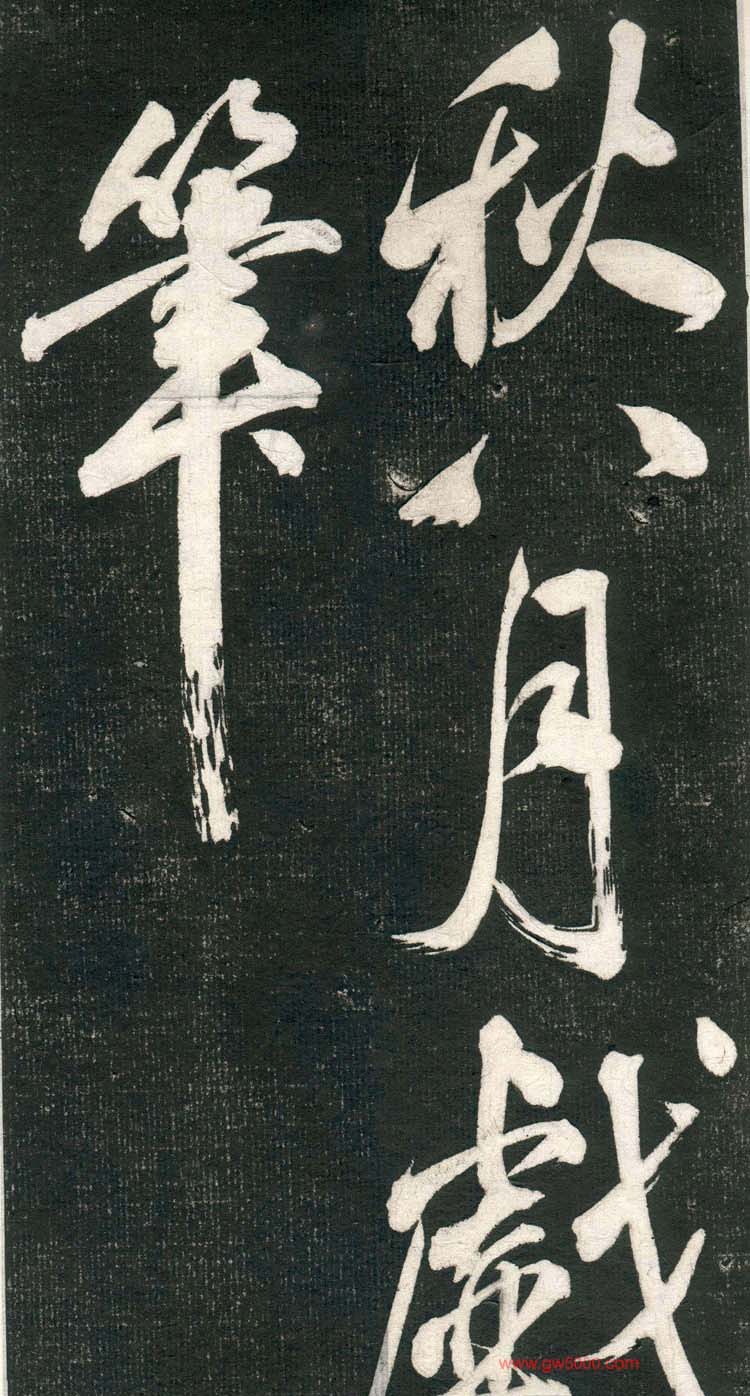 秋八月戲
筆
www.gw5000.com